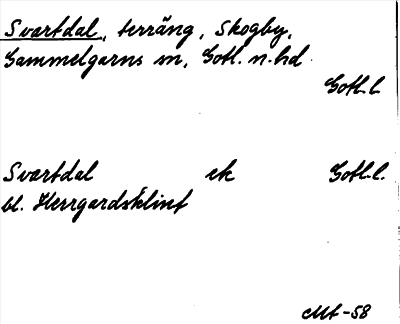 Svartdal, terräng, Skogby,
Gammelgarns sn, Gotl. n. hd
Gotl. l.
Svartdal ek Gotl. l.
bl. Herrgardsklint